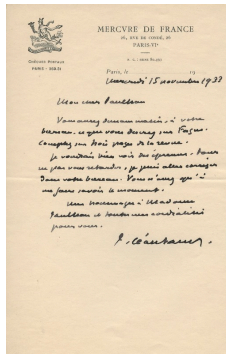 MERCVRE DE FRANCE
26, RVE DE CONDÉ, 26
PARIS-VIᵉ
Chèques Postaux
PARIS - 259-31
Paris, le 19
Mercredi 15 novembre 1933
Mon cher Paulhan
Vous aurez demain matin, à votre
bureau, ce que vous désirez sur Fagus.
Comptez sur trois pages de la revue.
Je voudrais bien voir des épreuves. Pour
ne pas vous retarder, je puis aller corriger
dans votre bureau. Vous n'avez qu'à
me faire savoir le moment.
Mes hommages à Madame
Paulhan et toutes mes cordialités
pour vous.
P. Léautaud